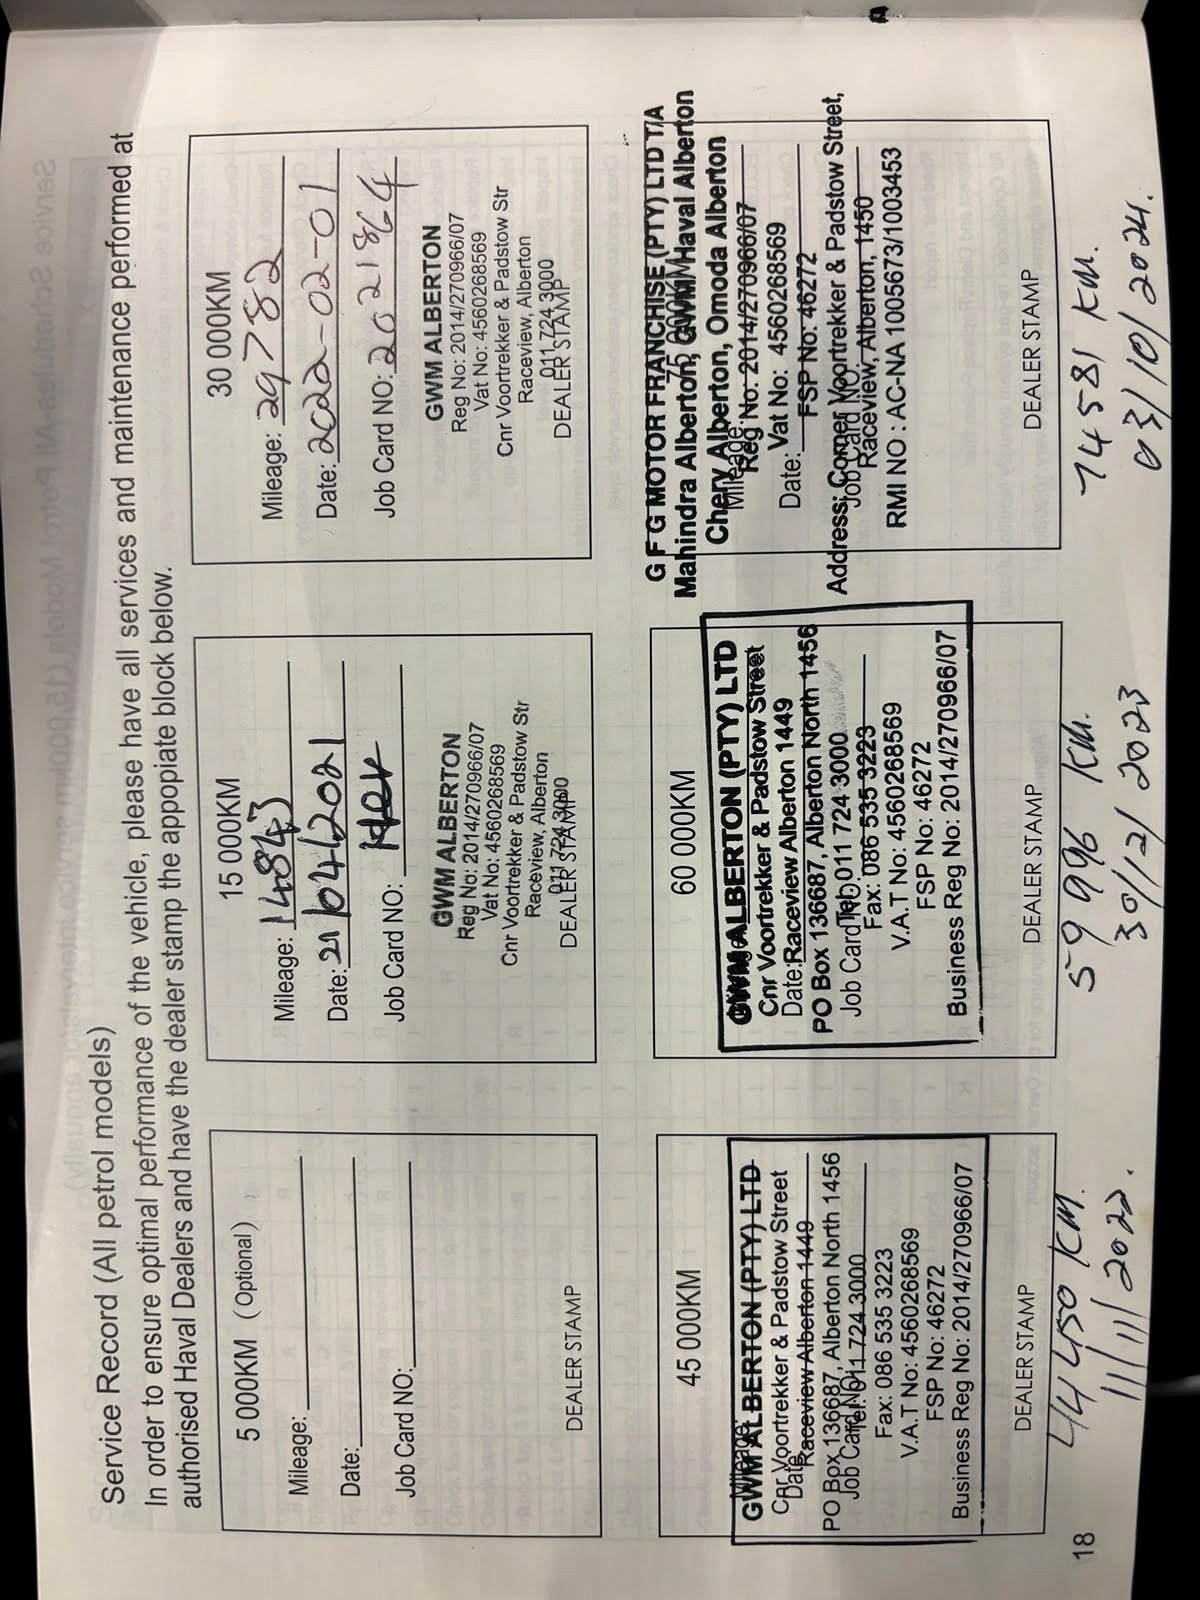 Service Record (All petrol models)
In order to ensure optimal performance of the vehicle, please have all services and maintenance performed at
authorised Haval Dealers and have the dealer stamp the appopiate block below.
5 000KM (Optional)
Mileage:
Date:
Job Card NO:
DEALER STAMP
15 000KM
Mileage: 14843
Date: 21/04/2021
Job Card NO:
GWM ALBERTON
Reg No: 2014/270966/07
Vat No: 4560268569
Cnr Voortrekker & Padstow Str
Raceview, Alberton
011 724 3000
DEALER STAMP
30 000KM
Mileage: 29782
Date: 2022-02-01
Job Card NO: 202184
GWM ALBERTON
Reg No: 2014/270966/07
Vat No: 4560268569
Cnr Voortrekker & Padstow Str
Raceview, Alberton
011 724 3000
DEALER STAMP
45 000KM
Mileage:
GWM ALBERTON (PTY) LTD
Cnr Voortrekker & Padstow Street
Date:
Raceview Alberton 1449
PO Box 136687, Alberton North 1456
Job Card NO:
Tel: 011 724 3000
Fax: 086 535 3223
V.A.T No: 4560268569
FSP No: 46272
Business Reg No: 2014/270966/07
DEALER STAMP
44450 KM.
11/11/2022.
60 000KM
GWM ALBERTON (PTY) LTD
Cnr Voortrekker & Padstow Street
Date:
Raceview Alberton 1449
PO Box 136687, Alberton North 1456
Job Card NO:
Tel: 011 724 3000
Fax: 086 535 3223
V.A.T No: 4560268569
FSP No: 46272
Business Reg No: 2014/270966/07
DEALER STAMP
59996 KM.
30/12/2023
G F G MOTOR FRANCHISE (PTY) LTD T/A
Mahindra Alberton, GWM Haval Alberton
Chery Alberton, Omoda Alberton
Mileage:
Reg No: 2014/270966/07
Vat No: 4560268569
Date:
FSP No: 46272
Address: Corner Voortrekker & Padstow Street,
Job Card NO:
Raceview, Alberton, 1450
RMI NO : AC-NA 1005673/1003453
DEALER STAMP
74581 KM.
03/10/2024.
18